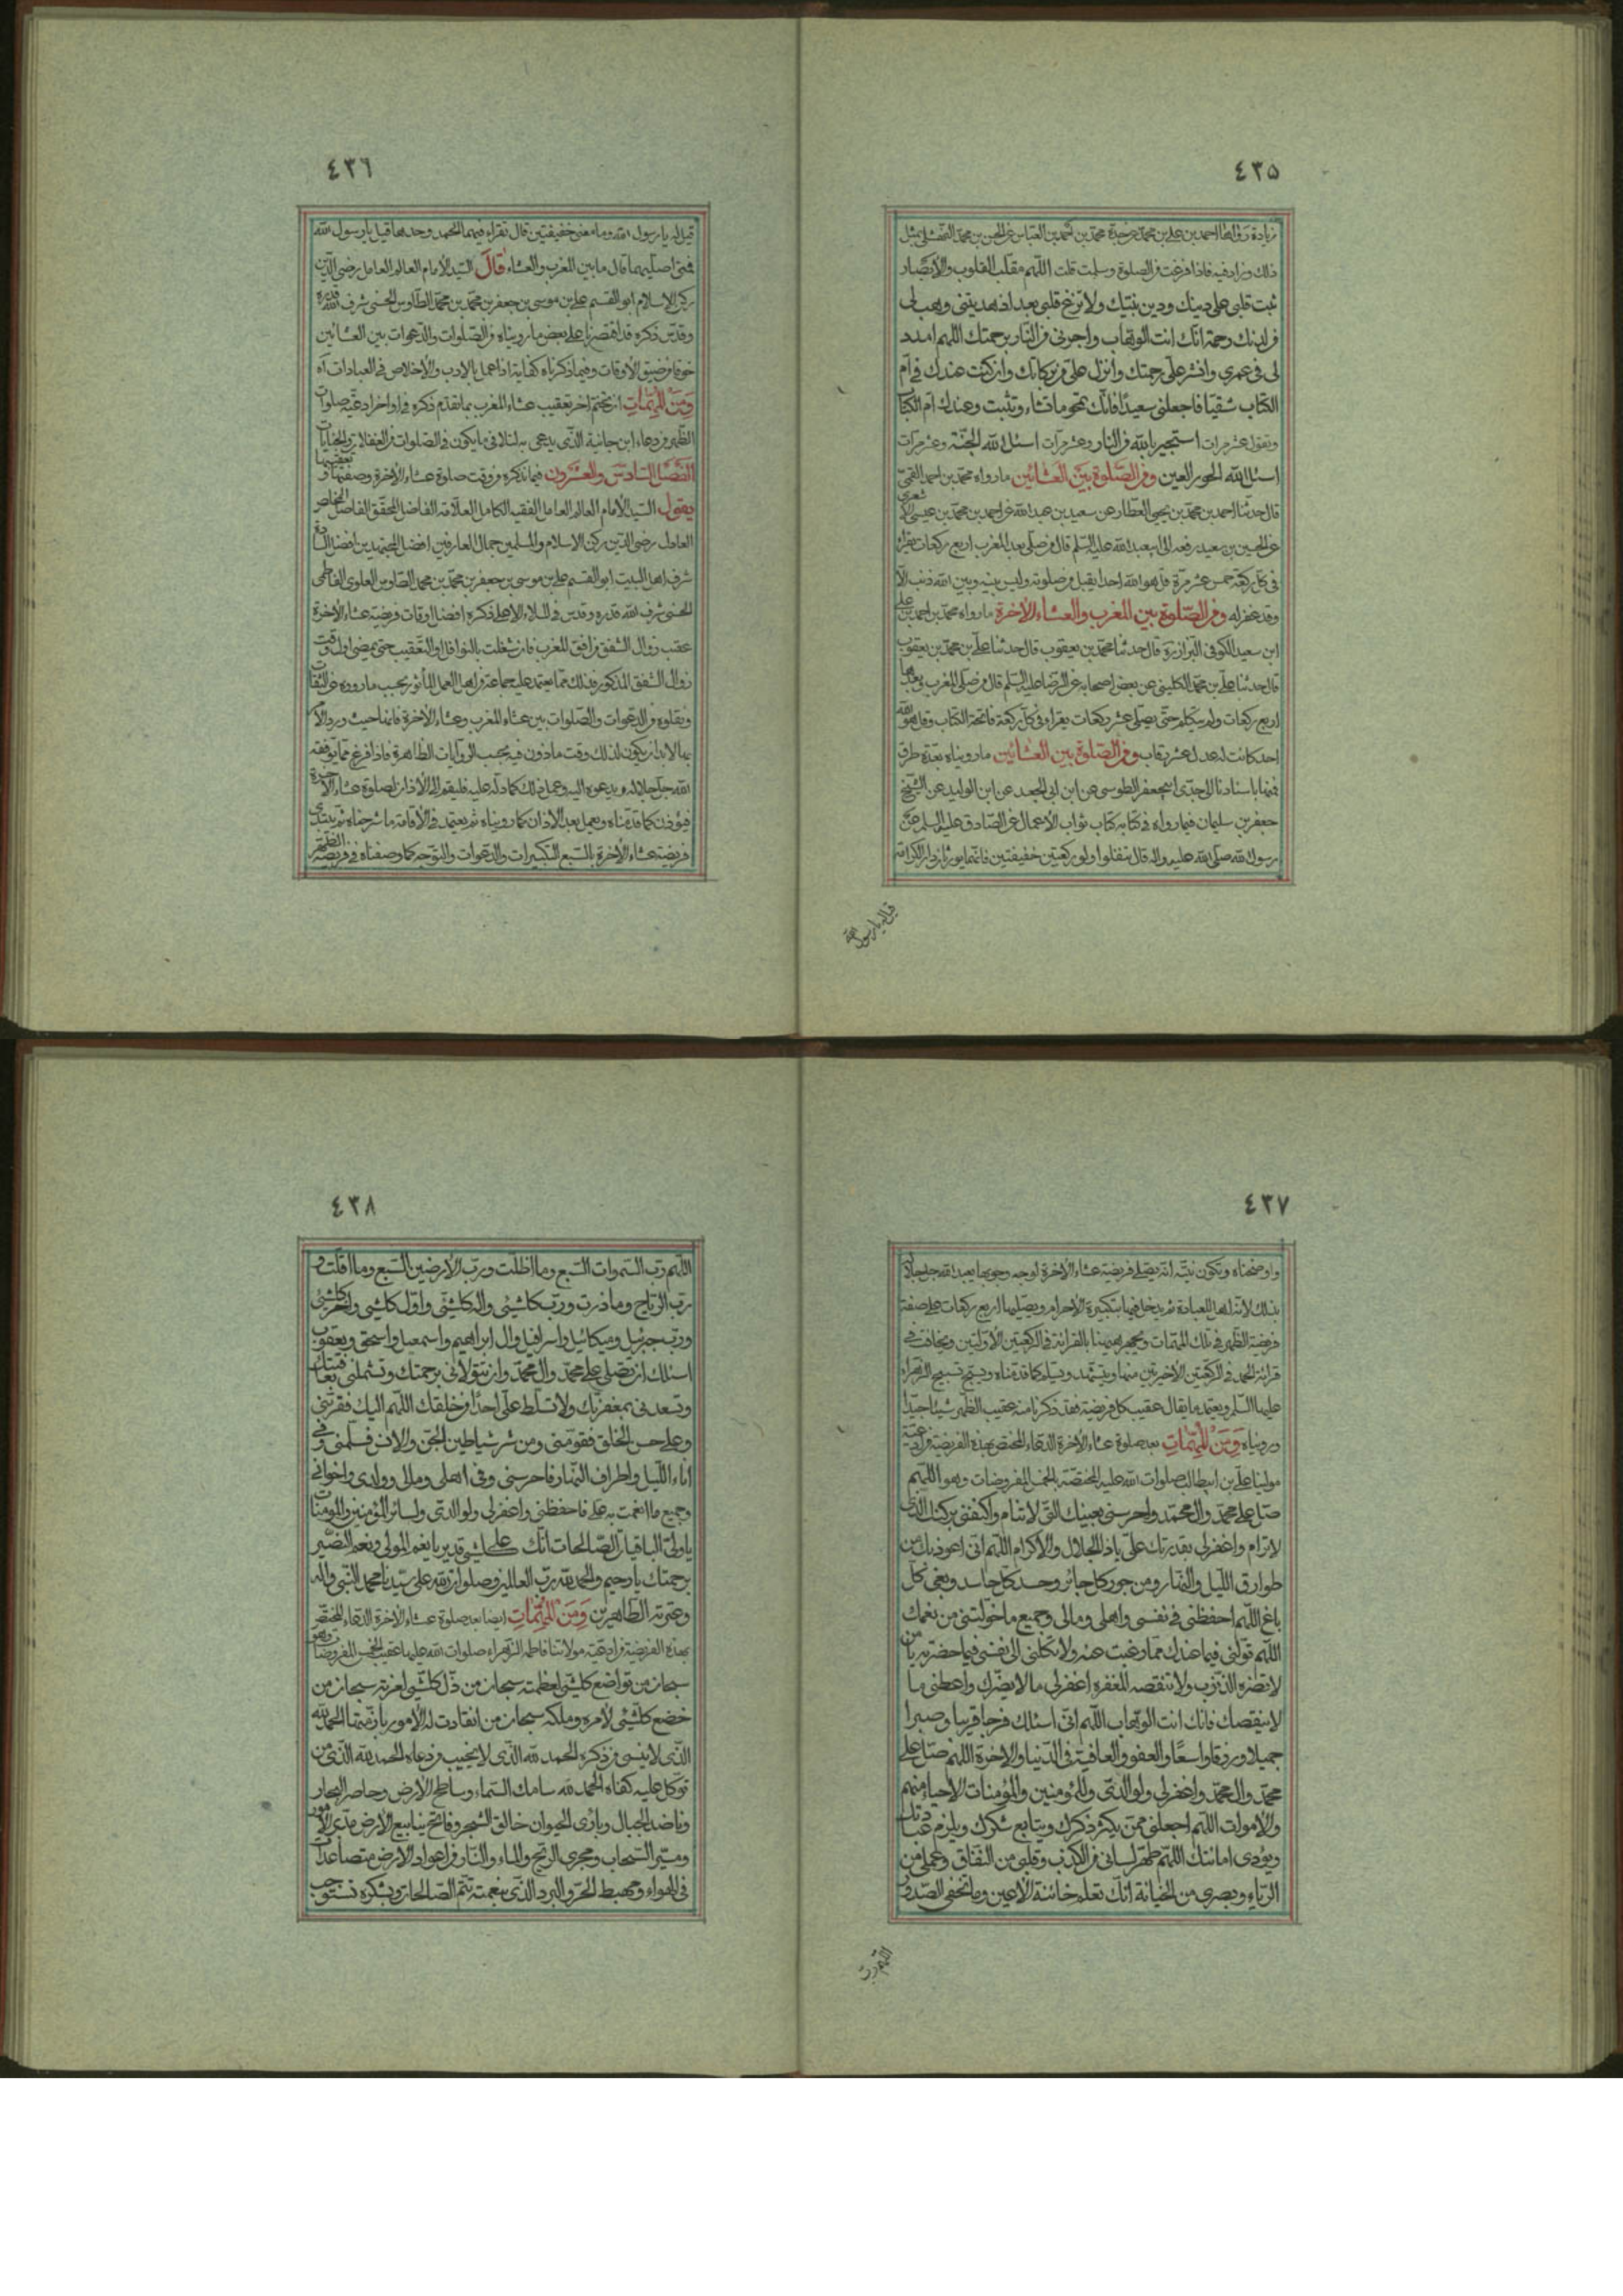 ٤٣٥
زيادة رواها احمد بن علي بن محمد عن جده محمد بن العباس عن الحسن بن محمد النهشلي بمثل
ذلك وزاد فيه فاذا فرغت من الصلوة وسلمت قلت اللهم مقلب القلوب والابصار
ثبت قلبي على دينك ودين نبيك ولا تزغ قلبي بعد اذ هديتني وهب لي
من لدنك رحمة انك انت الوهاب واجرني من النار برحمتك اللهم امدد
لي في عمري وانشر علي رحمتك وانزل علي من بركاتك وان كنت عندك في ام
الكتاب شقيا فاجعلني سعيدا فانك تمحو ما تشاء وتثبت وعندك ام الكتاب
وتقول عشر مرات استجير بالله من النار وعشر مرات اسئل الله الجنة وعشر مرات
اسئل الله الحور العين ومن الصلوة بين العشائين ما رواه محمد بن احمد القمي
قال حدثنا احمد بن محمد بن يحيى العطار عن سعيد بن عبد الله عن احمد بن محمد بن عيسى الاشعري
عن الحسين بن سعيد رفعه الى ابي عبد الله عليه السلم قال من صلى بعد المغرب اربع ركعات يقرء
في كل ركعة خمس عشر مرة قل هو الله احد انفتل من صلوته وليس بينه وبين الله ذنب الا
وقد غفر له ومن الصلوة بين المغرب والعشاء الاخرة ما رواه محمد بن احمد بن علي
ابن سعيد الكوفي البزاز قال حدثنا محمد بن يعقوب قال حدثنا علي بن محمد بن يعقوب
قال حدثنا علي بن محمد الكليني عن بعض اصحابه عن الرضا عليه السلم قال من صلى المغرب وبعدها
اربع ركعات ولم يتكلم حتى يصلي عشر ركعات يقرء في كل ركعة فاتحة الكتاب وقل هو الله
احد كانت له عدل عشر رقاب ومن الصلوة بين العشائين ما رويناه بعدة طرق
فمنها باسنادنا الى جدي ابي جعفر الطوسي عن ابن ابي الجيد عن ابن الوليد عن الشيخ
جعفر بن سليمان فيما رواه في كتابه كتاب ثواب الاعمال عن الصادق عليه السلم عن
رسول الله صلى الله عليه واله قال تنفلوا ولو ركعتين خفيفتين فانهما يورثان دار الكرامة
قيل له يا رسول الله
٤٣٦
قيل له يا رسول الله وما معنى خفيفتين قال تقراء فيهما الحمد وحدها قيل يا رسول الله
فمتى اصليهما قال ما بين المغرب والعشاء قال السيد الامام العالم العامل رضي الدين
ركن الاسلام ابو القسم علي بن موسى بن جعفر بن محمد بن محمد الطاوس الحسني شرف الله قدره
وقدس ذكره قد اقتصرنا على بعض ما رويناه من الصلوات والدعوات بين العشائين
خوفا من ضيق الاوقات وفيما ذكرناه كفاية اذا عمل بالادب والاخلاص في العبادات
ومن المهمات ان يختم اخر تعقيب عشاء المغرب بما تقدم ذكره في اواخر ادعية صلوات
الظهر من دعاء ابن خانبة الذي يدعى به لتلافي ما يكون في الصلوات من الغفلات والجنايات
الفصل السادس والعشرون فيما نذكره من وقت صلوة عشاء الاخرة وصفتها وتعقيبها
يقول السيد الامام العالم العامل الفقيه الكامل العلامة الفاضل المحقق المخلص
العادل رضي الدين ركن الاسلام والمسلمين جمال العارفين افضل المجتهدين افضل السادة
شرف اهل البيت ابو القسم علي بن موسى بن جعفر بن محمد بن محمد الطاوس العلوي الفاطمي
الحسني شرف الله قدره وقدس في الملاء الاعلى ذكره افضل اوقات فريضة عشاء الاخرة
عقيب زوال الشفق من افق المغرب فان شغلت بالنوافل او التعقيب حتى يمضي اول وقت
زوال الشفق المذكور فذلك مما يعتمد عليه جماعة من اهل العمل المأثور بحسب ما رووه عن الثقات
ونقلوه من الدعوات والصلوات بين عشاء المغرب وعشاء الاخرة فانما حيث ورد الامر
بما لابد ان يكون لذلك وقت ماذون فيه بحسب الروايات الظاهرة فاذا فرغ مما يوفقه
الله جل جلاله له ويدعوه اليه وعمل ذلك كما دله عليه فليقم الى الاذان لصلوة عشاء الاخرة
فيؤذن كما قدمناه ويعمل بعد الاذان كما رويناه ثم يعتمد في الاقامة ما شرحناه ثم يبتدي
فريضة عشاء الاخرة بالسبع التكبيرات والدعوات والتوجه كما وصفناه في فريضة الظهر
٤٣٧
واوضحناه وتكون نيته انه يصلي فريضة عشاء الاخرة لوجه وجوبها يعبد الله جل جلاله
بذلك لانه اهل للعبادة ثم يدخل فيها بتكبيرة الاحرام ويصليها اربع ركعات على صفة
فريضة الظهر في تلك المهمات ويجهر ههنا بالقرائة في الركعتين الاولتين ويخافت في
قرائة الحمد في الركعتين الاخيرتين منها ويتشهد ويسلم كما قدمناه ويسبح تسبيح الزهراء
عليها السلم ويعتمد ما يقال عقيب كل فريضة فقد ذكرنا منه عقيب الظهر شيئا جيدا
ورويناه ومن المهمات بعد صلوة عشاء الاخرة الدعاء المختص بهذه الفريضة من ادعية
مولينا علي بن ابيطالب صلوات الله عليه المختصة بالخمس المفروضات وهو اللهم
صل على محمد وال محمد واحرسني بعينك التي لا تنام واكنفني بركنك الذي
لا يرام واغفر لي بقدرتك علي يا ذا الجلال والاكرام اللهم اني اعوذ بك من
طوارق الليل والنهار ومن جور كل جائر وحسد كل حاسد وبغي كل
باغ اللهم احفظني في نفسي واهلي ومالي وجميع ما خولتني من نعمك
اللهم تولني فيما عندك مما غبت عنه ولا تكلني الى نفسي فيما حضرته يا من
لا تضره الذنوب ولا تنقصه المغفرة اغفر لي ما لا يضرك واعطني ما
لا ينقصك فانك انت الوهاب اللهم اني اسئلك فرجا قريبا وصبرا
جميلا ورزقا واسعا والعفو والعافية في الدنيا والاخرة اللهم صل على
محمد وال محمد واغفر لي ولوالدي وللمؤمنين والمؤمنات الاحياء منهم
والاموات اللهم اجعلني ممن يكثر ذكرك ويتابع شكرك ويلزم عبادتك
ويؤدي امانتك اللهم طهر لساني من الكذب وقلبي من النفاق وعملي من
الرياء وبصري من الخيانة انك تعلم خائنة الاعين وما تخفي الصدور
اللهم رب
٤٣٨
اللهم رب السموات السبع وما اظلت ورب الارضين السبع وما اقلت و
رب الرياح وما ذرت ورب كل شيئ واله كل شيئ واول كل شيئ واخر كل شيئ
ورب جبرئيل وميكائيل واسرافيل وال ابراهيم واسمعيل واسحق ويعقوب
اسئلك ان تصلي على محمد وال محمد وان تتولاني برحمتك وتشملني بعافيتك
وتسعدني بمغفرتك ولا تسلط علي احدا من خلقك اللهم اليك فقربني
وعلى حسن الخلق فقومني ومن شر شياطين الجن والانس فسلمني وفي
اناء الليل واطراف النهار فاحرسني وفي اهلي ومالي وولدي واخواني
وجميع ما انعمت به علي فاحفظني واغفر لي ولوالدي ولسائر المؤمنين والمؤمنات
يا ولي الباقيات الصالحات انك على كل شيئ قدير يا نعم المولى ونعم النصير
برحمتك يا رحيم والحمد لله رب العالمين وصلوات الله على سيدنا محمد النبي واله
وعترته الطاهرين ومن المهمات ايضا بعد صلوة عشاء الاخرة الدعاء المختص
بهذه الفريضة من ادعية مولاتنا فاطمة الزهراء صلوات الله عليها عقيب الخمس المفروضات وهو
سبحان من تواضع كل شيئ لعظمته سبحان من ذل كل شيئ لعزته سبحان من
خضع كل شيئ لامره وملكه سبحان من انقادت له الامور بازمتها الحمد لله
الذي لا ينسى من ذكره الحمد لله الذي لا يخيب من دعاه الحمد لله الذي من
توكل عليه كفاه الحمد لله سامك السماء وساطح الارض وحاصر البحار
وناضد الجبال وبارئ الحيوان خالق الشجر وفاتح ينابيع الارض مدبر الامور
ومسير السحاب ومجري الريح والماء والنار من اغوار الارض متصاعدات
في الهواء ومهبط الحر والبرد الذي بنعمته تتم الصالحات وبشكره تستوجب